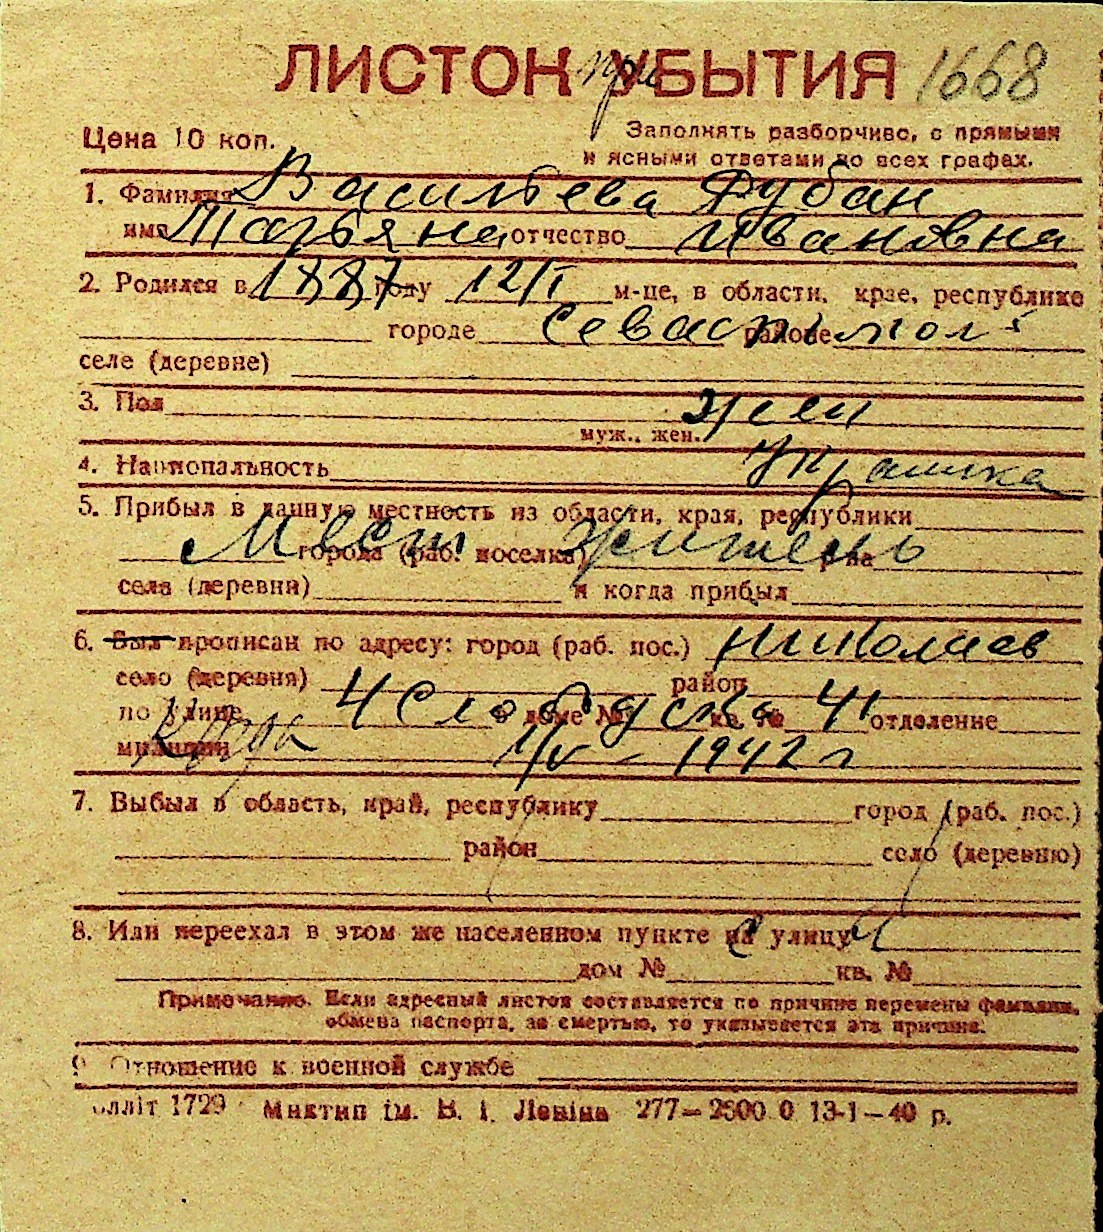 ЛИСТОК при УБЫТИЯ 1668
Цена 10 коп.
Заполнять разборчиво, с прямыми
и ясными ответами по всех графах.
1. Фамилия Васильева Дубан
имя Татьяна отчество Ивановна
2. Родился в 1887 году 12/I м-це, в области, крае, республике
городе Севастополь районе
селе (деревне)
3. Пол жен
муж., жен.
4. Национальность Украинка
5. Прибыл в данную местность из области, края, республики
Мест города (раб. поселка) житель р-на
села (деревни) и когда прибыл
6. Был прописан по адресу: город (раб. пос.) Николаев
село (деревня) район
по улице 4 Слободска в доме № кв. № 41 отделение
милиции 1/V - 1942 г
7. Выбыл в область, край, республику город (раб. пос.)
район село (деревню)
8. Или переехал в этом же населенном пункте на улицу
дом № кв. №
Примечание. Если адресный листок составляется по причине перемены фамилии,
обмена паспорта, за смертью, то указывается эта причина.
9 Отношение к военной службе
олліт 1729 Миктип ім. В. І. Леніна 277—2600 0 13-1—40 р.